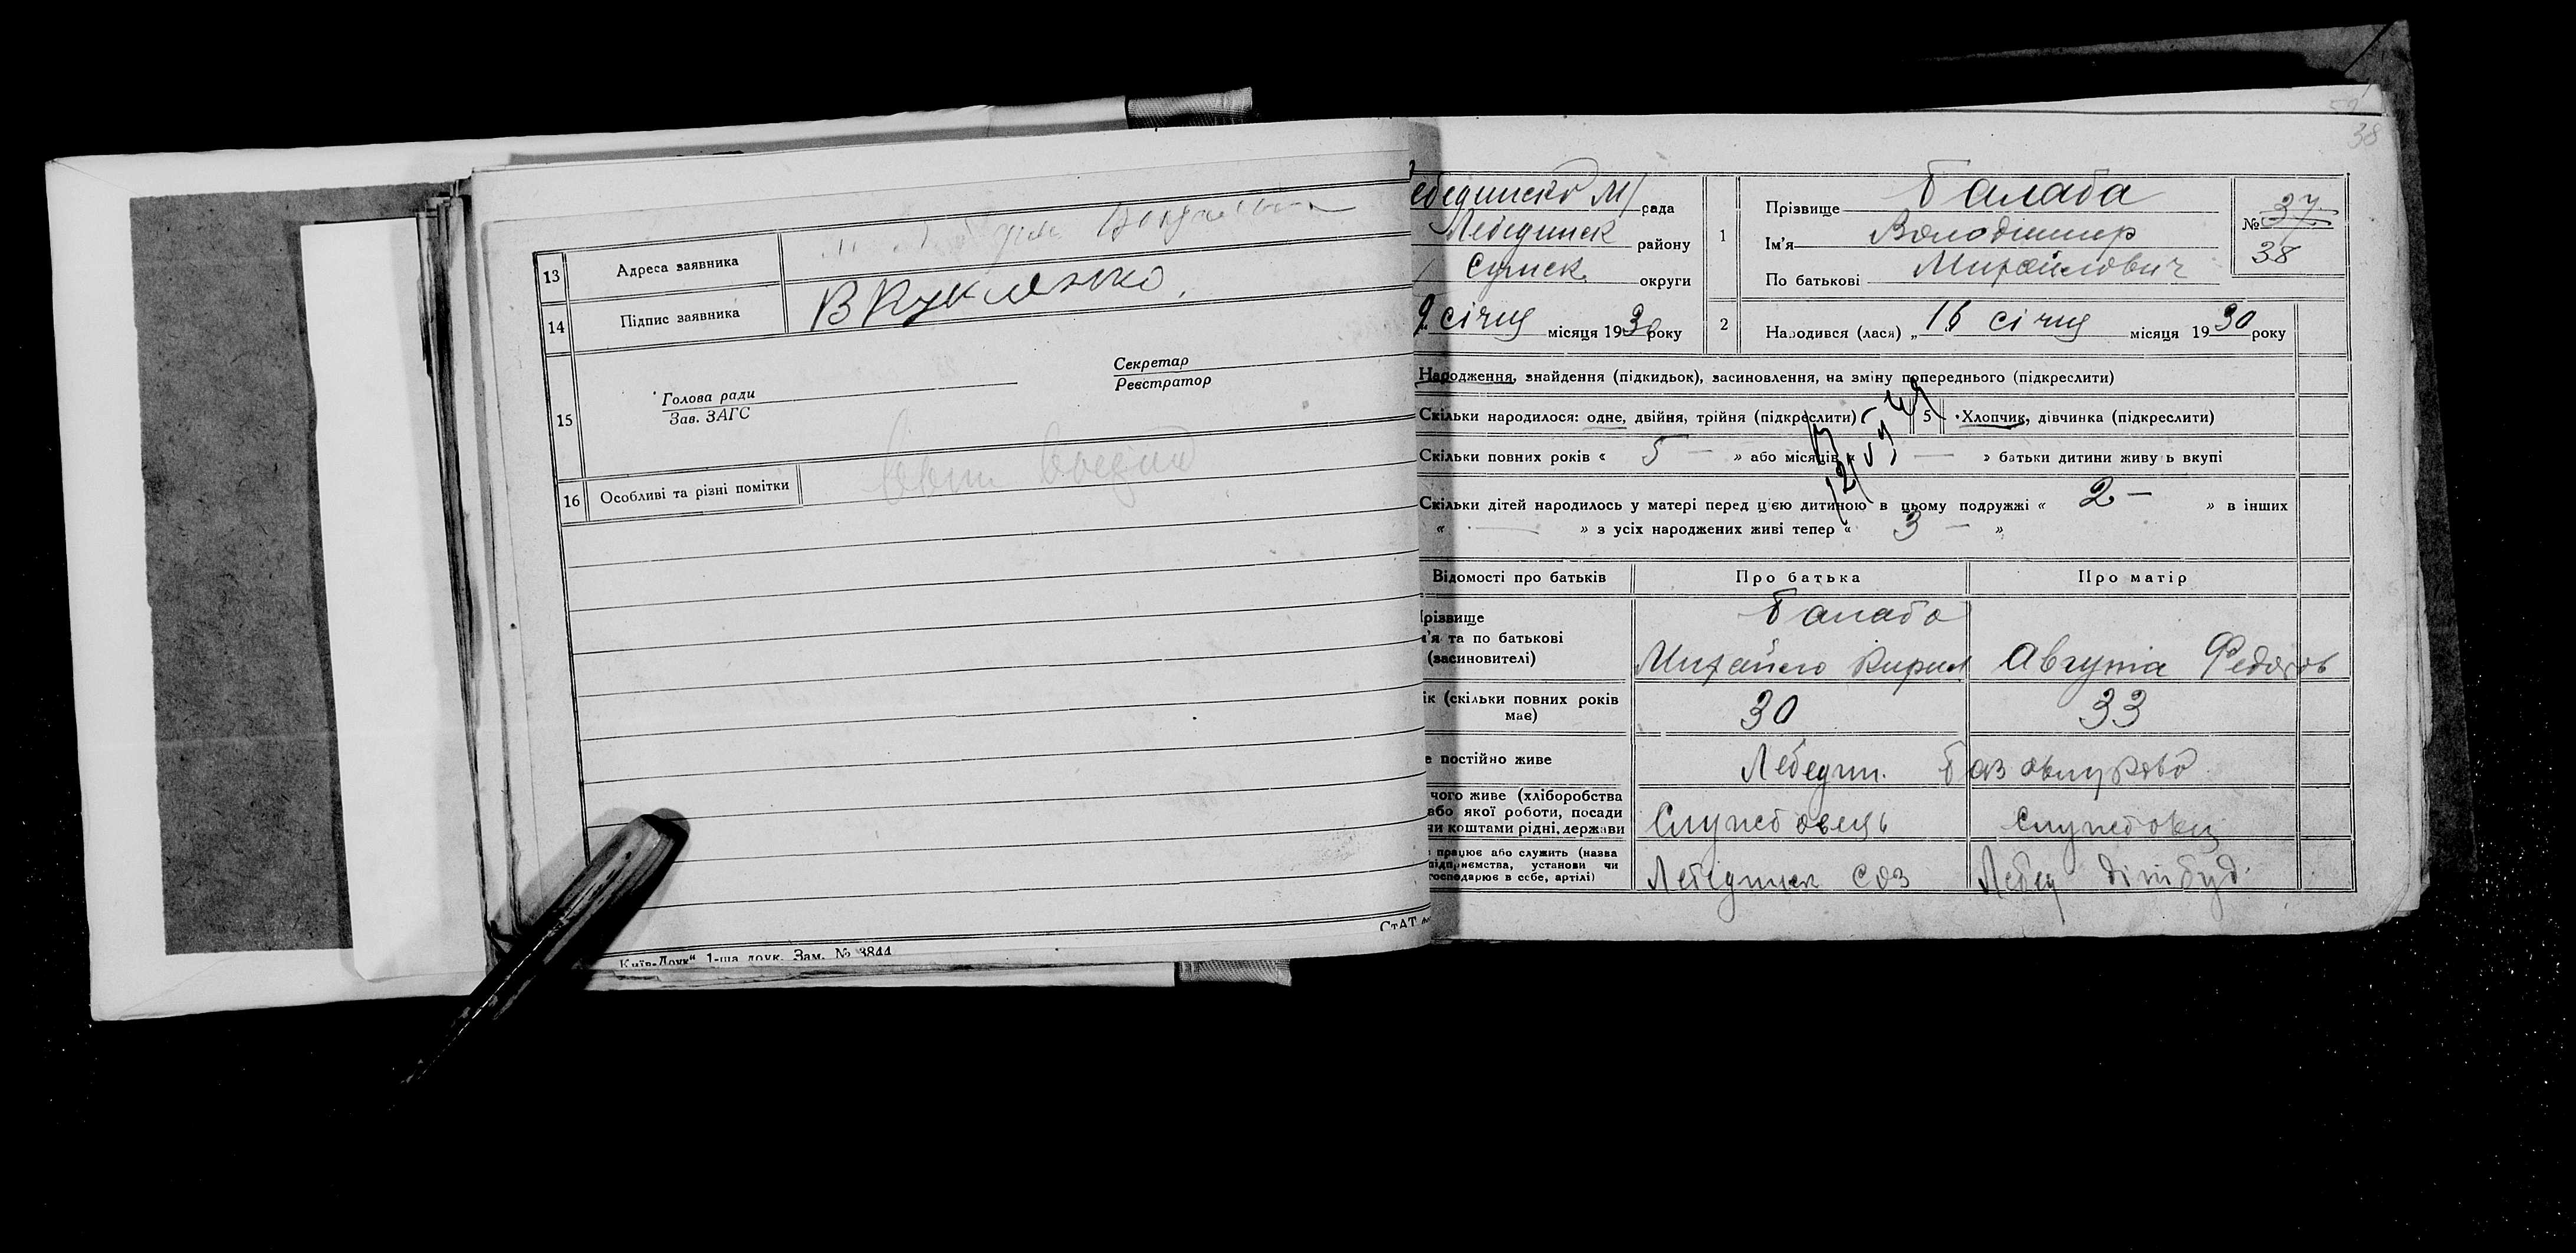 13 Адреса заявника
14 Підпис заявника В Кукленко
15 Голова ради Секретар
Зав. ЗАГС Реєстратор
16 Особливі та різні помітки
Київ-Друк" 1-ша друк. Зам. № 3844
СтАТ
38
ебединсько М/ рада
Лебединск району
Сумск. округи
9 січня місяця 1930 року
1 Прізвище Балаба
Ім'я Володимир
По батькові Михайлович
№ 37
38
2 Народився (лася) „ 16 січня місяця 1930 року
Народження, знайдення (підкидьок), засиновлення, на зміну попереднього (підкреслити)
Скільки народилося: одне, двійня, трійня (підкреслити) 5 Хлопчик, дівчинка (підкреслити)
Скільки повних років « 5 — » або місяців « — » батьки дитини живуь вкупі
Скільки дітей народилось у матері перед цією дитиною в цьому подружжі « 2 — » в інших
« — » з усіх народжених живі тепер « 3 — »
Відомості про батьків Про батька Про матір
різвище
'я та по батькові
(засиновителі)
Балаба
Михайло Кирил Августа Федоров
ік (скільки повних років
має)
30 33
е постійно живе Лебедин.
чого живе (хліборобства
або якої роботи, посади
чи коштами рідні, держави
Службовець Службовц
працює або служить (назва
підприємства, установи чи
господарює в себе, артілі)
Лебединск СОЗ Лебед дитбуд.